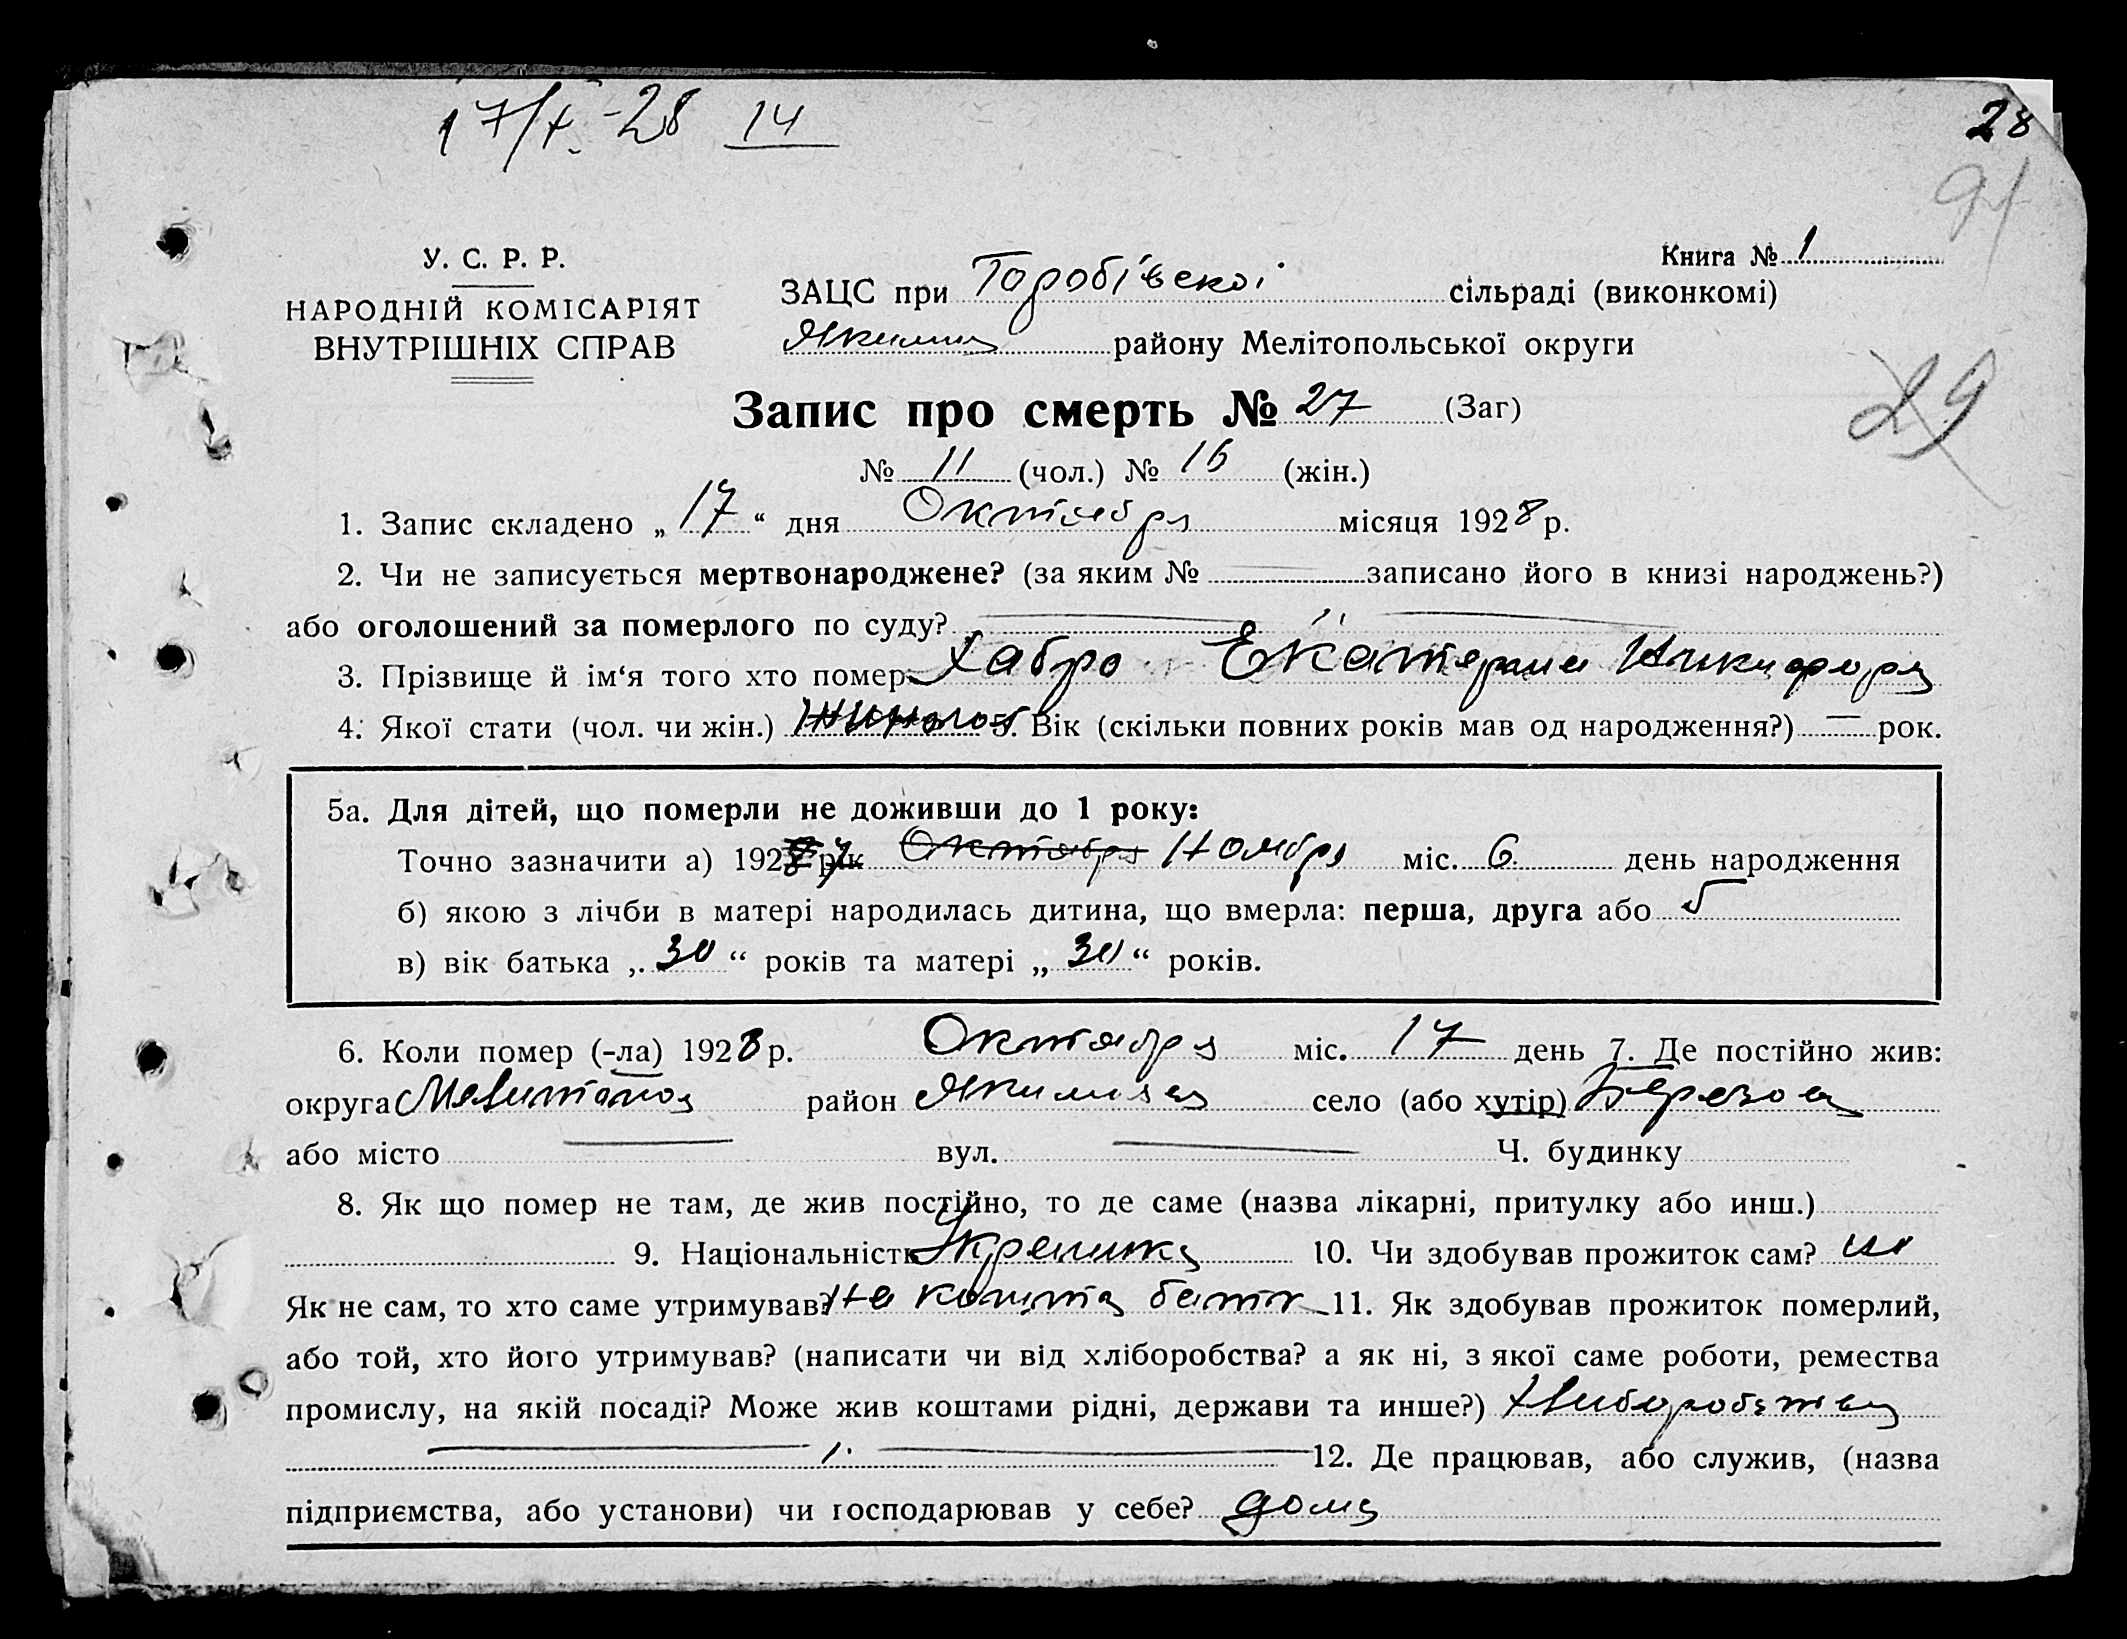 17/X-28 14
28
91
У. С. Р. Р.
НАРОДНІЙ КОМІСАРІЯТ
ВНУТРІШНІХ СПРАВ
Книга № 1
ЗАЦС при Горобівскоі сільраді (виконкомі)
Якими району Мелітопольської округи
29
Запис про смерть № 27 (Заг)
№ 11 (чол.) № 16 (жін.)
1. Запис складено „ 17 “ дня Октября місяця 1928 р.
2. Чи не записується мертвонароджене? (за яким № записано його в книзі народжень?)
або оголошений за померлого по суду?
3. Прізвище й ім‘я того хто помер Хабро Екатерина Никифоря
4. Якої стати (чол. чи жін.) 5. Вік (скільки повних років мав од народження?) — рок.
5а. Для дітей, що померли не доживши до 1 року:
Точно зазначити а) 1927 рік Октября Ноября міс. 6 день народження
б) якою з лічби в матері народилась дитина, що вмерла: перша, друга або 5
в) вік батька „ 30 “ років та матері „ 30 “ років.
6. Коли помер (-ла) 1928 р. Октября міс. 17 день 7. Де постійно жив:
округа район село (або хутір)
або місто — вул. — Ч. будинку
8. Як що помер не там, де жив постійно, то де саме (назва лікарні, притулку або инш.)
9. Національність 10. Чи здобував прожиток сам? ні
Як не сам, то хто саме утримував? На кошти батк 11. Як здобував прожиток померлий,
або той, хто його утримував? (написати чи від хліборобства? а як ні, з якої саме роботи, ремества
промислу, на якій посаді? Може жив коштами рідні, держави та инше?) Хліборобство
12. Де працював, або служив, (назва
підприємства, або установи) чи господарював у себе? дома